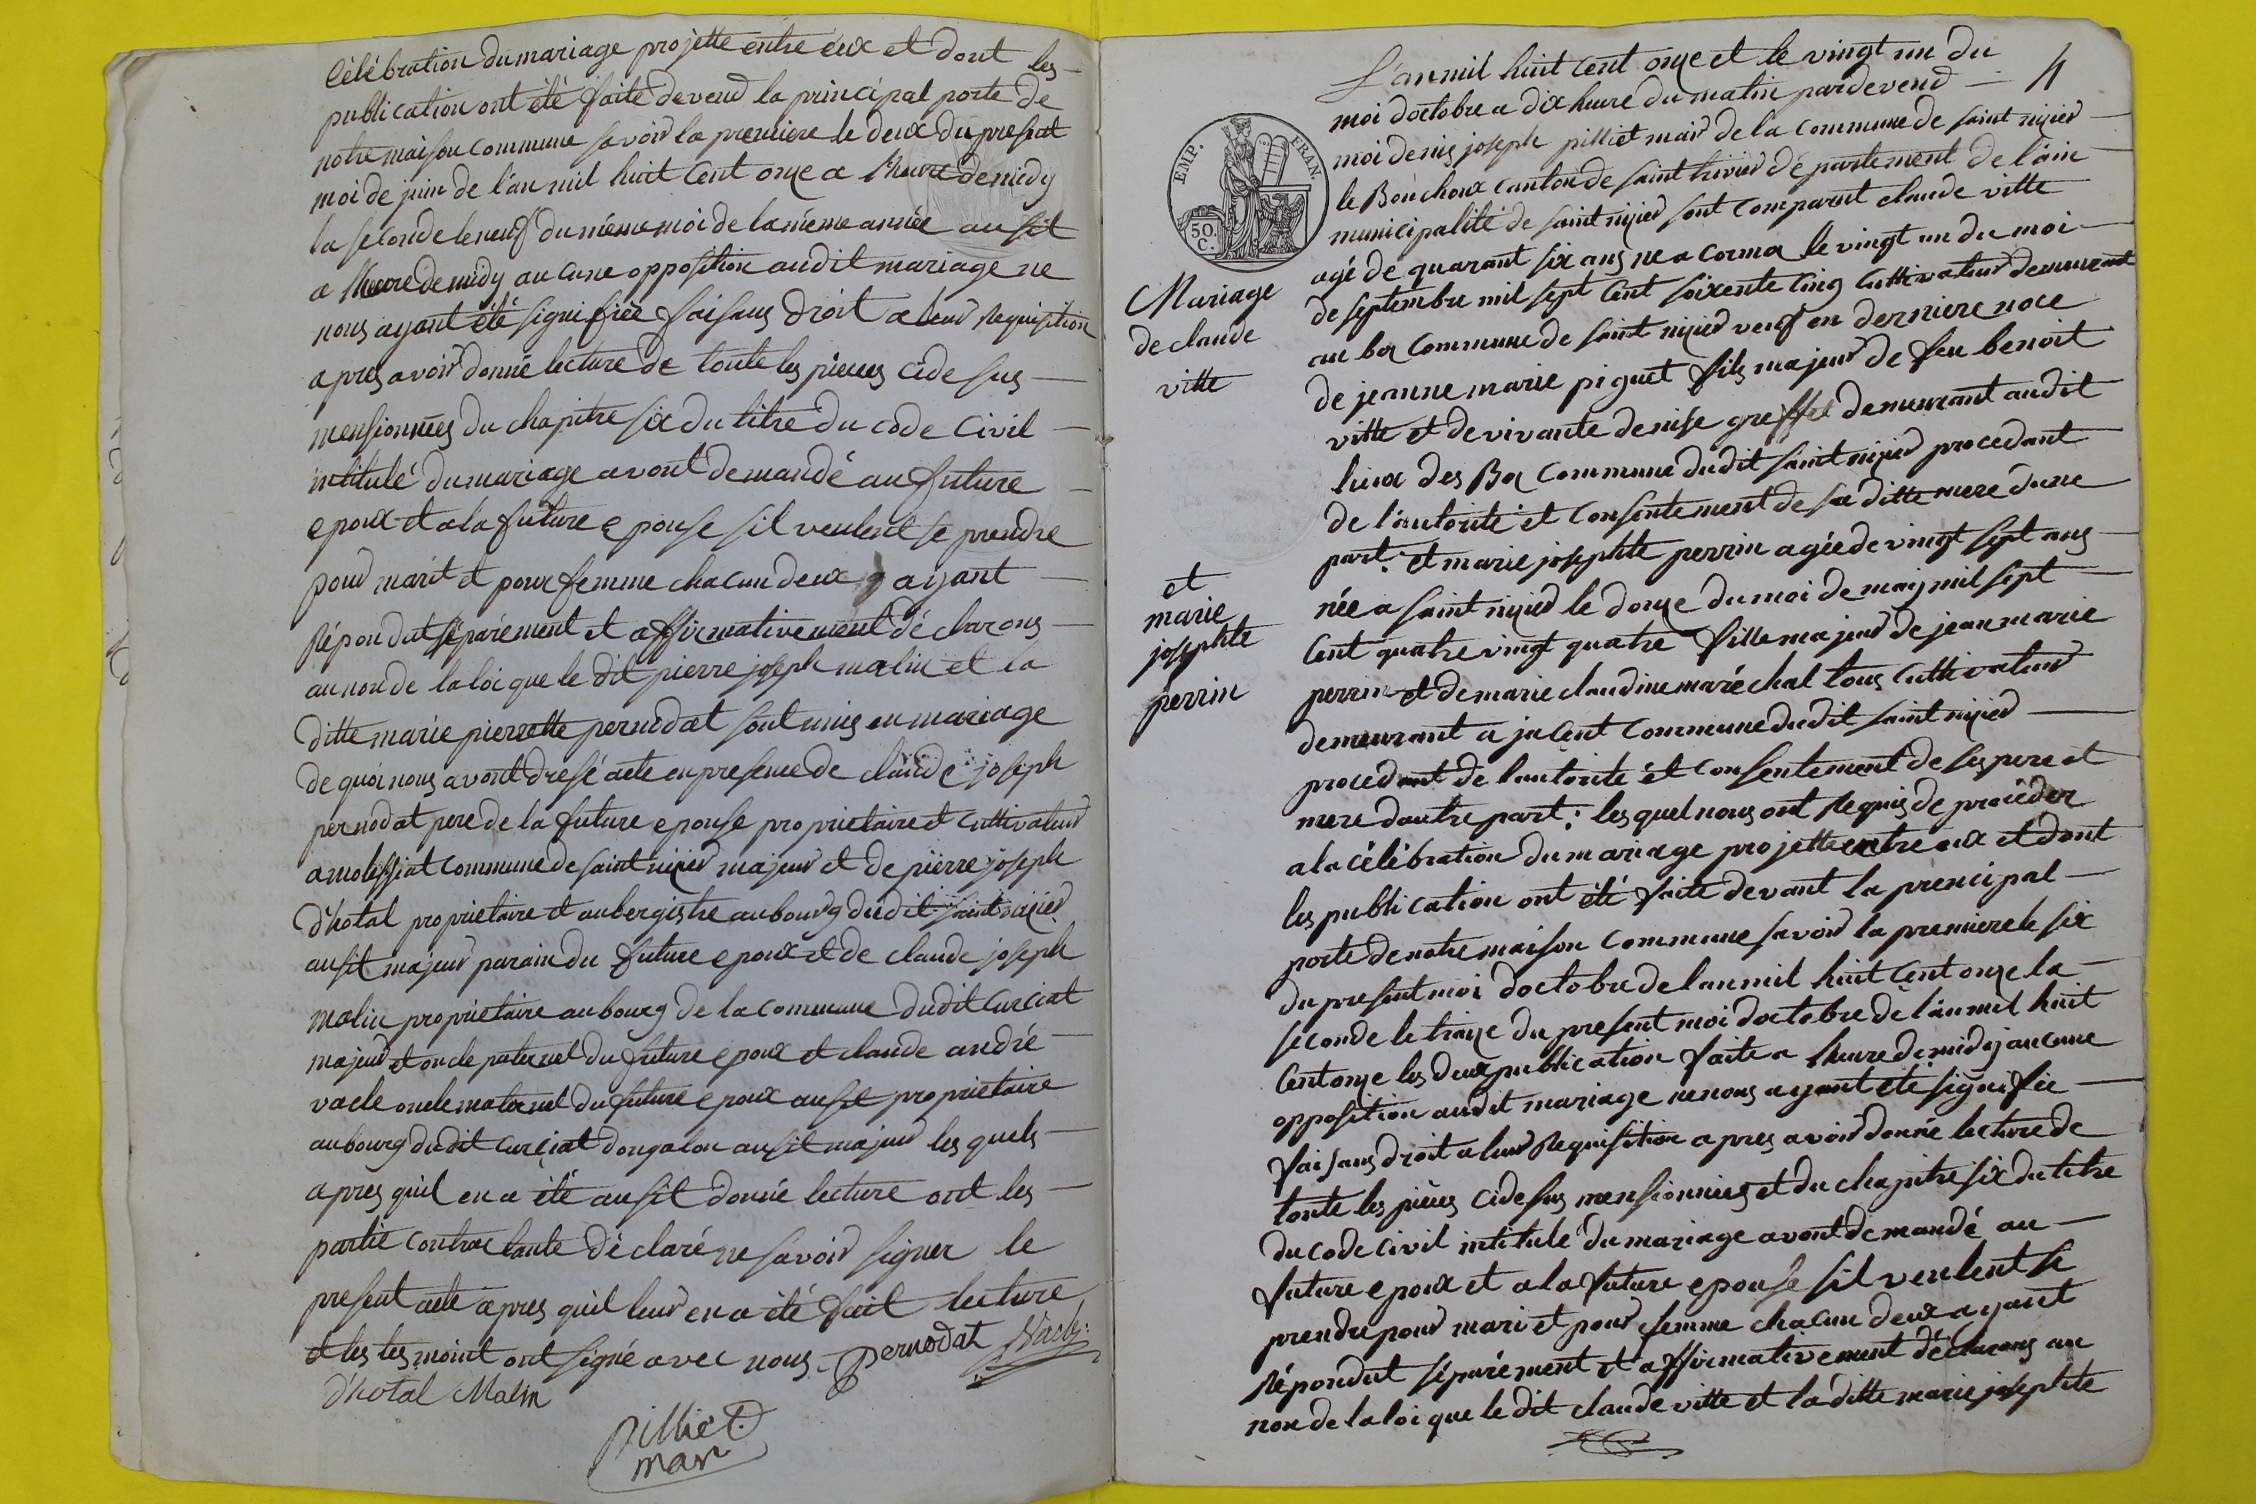 Célébration du mariage projette entre eux et dont les
publication ont été faite devend la principal porte de
notre maison commune savoir la premiere le deux du present
moi de juin de l'an mil huit cent onze a lheure de midy
la seconde le neuf du méme moi de la méme année ausit
a lheure de midy aucune opposition audit mariage ne
nous ayant été signifiée faisans droit a leur Requisition
apres avoir donné lecture de toute les pieces cide sus
mensionnées du chapitre six du titre du code Civil
intitulé du mariage avont demandé au future
epoux et a la future epouse sil veulent se prendre
pour marit et pour femme chacun deux ayant
Répondut séparément et affirmativement déclarons
au non de la loi que le dit pierre joseph malin et la
ditte marie pierrette pernodat sont unis en mariage
de quoi nous avont dressé acte en presence de claude joseph
pernodat pere de la future epouse proprietaire et Cultivateur
a molissiat commune de saint nizier majeur et de pierre joseph
d'hotal proprietaire et aubergistre au bourg dudit saint nizier
ausit majeur parain du future epoux et de claude joseph
malin proprietaire au bourg de la commune dudit Curciat
majeur et oncle paternel du future epoux et claude andré
vacle oncle maternel du future epoux ausit proprietaire
au bourg dudit Curciat dongalon ausit majeur les quels
apres quil en a été ausit donné lecture ont les
partie contractante déclaré ne savoir signer le
present acte apres quil leur en a été fait lecture
et les tesmoint ont signé avec nous. pernodat Vacle
d'hotal Malin
pilliet
mair
4
L'an mil huit cent onze et le vingt un du
moi doctobre a dix heure du matin pardevend
moi denis joseph pilliet mair de la commune de saint nizier
le Bouchoux canton de saint trivier département de l'ain
municipalité de saint nizier sont comparut claude vitte
agé de quarant six ans ne a corma le vingt un du moi
de septembre mil sept cent soixente cinq Cultivateur demeurant
au bex commune de saint nizier veuf en derniere noce
de jeanne marie piguet fils majeur de feu benoit
vitte et de vivante denise greffet demeurant audit
lieux des Bex commune dudit saint nizier procedant
de l'autorité et consentement de sa ditte mere dune
part. et marie josephte perrin agée de vingt sept ans
née a saint nizier le douze du moi de maij mil sept
cent quatre vingt quatre fille majeur de jean marie
perrin et de marie claudine maréchal tous Cultivateur
demeurant a jacent commune dudit saint nizier
procedant de lautorité et consentement de ses pere et
mere dautre part; les quel nous ont Requis de procéder
a la célébration du mariage projette entre eux et dont
les publication ont été faite devant la prencipal
porte de notre maison commune savoir la premiere le six
du present moi doctobre de lan mil huit cent onze la
seconde le traize du present moi doctobre de l'an mil huit
cent onze les deux publication faite a lheure de midij aucune
opposition audit mariage ne nous ayant été signifiée
faisans droit a leur Requisition apres avoir donné lecture de
toute les pieces cide sus mensionnées et du chapitre six du titre
du code civil intitulé du mariage avont demandé au
future epoux et a la future epouse sil veulent se
prendre pour mari et pour femme chacun deux ayant
Répondut séparément et affirmativement déclarons au
non de la loi que le dit claude vitte et la ditte marie josephte
EMP. FRAN.
50. C.
Mariage
de claude
vitte
et
marie
josephte
perrin